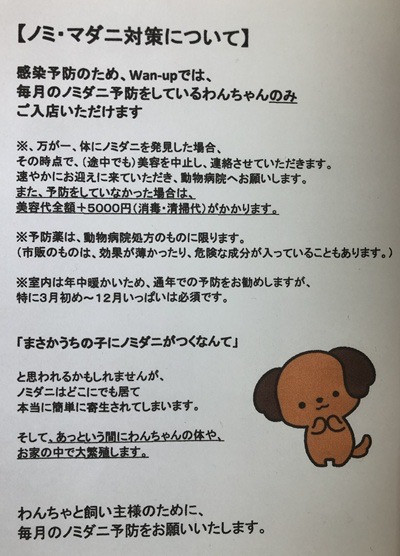 【ノミ・マダニ対策について】
感染予防のため、Wan-upでは、
毎月のノミダニ予防をしているわんちゃんのみ
ご入店いただけます
※、万が一、体にノミダニを発見した場合、
その時点で、(途中でも)美容を中止し、連絡させていただきます。
速やかにお迎えに来ていただき、動物病院へお願いします。
また、予防をしていなかった場合は、
美容代全額+5000円(消毒・清掃代)がかかります。
※予防薬は、動物病院処方のものに限ります。
(市販のものは、効果が薄かったり、危険な成分が入っていることもあります。)
※室内は年中暖かいため、通年での予防をお勧めしますが、
特に3月初め~12月いっぱいは必須です。
「まさかうちの子にノミダニがつくなんて」
と思われるかもしれませんが、
ノミダニはどこにでも居て
本当に簡単に寄生されてしまいます。
そして、あっという間にわんちゃんの体や、
お家の中で大繁殖します。
わんちゃと飼い主様のために、
毎月のノミダニ予防をお願いいたします。